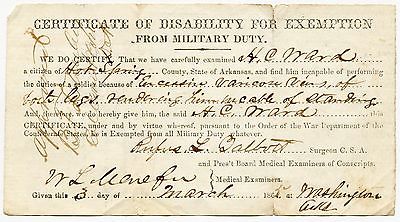 CERTIFICATE OF DISABILITY FOR EXEMPTION
FROM MILITARY DUTY.
WE DO CERTIFY, That we have carefully examined H. C. Ward
a citizen of Hot Spring County, State of Arkansas, and find him incapable of performing
the duties of a soldier because of varicose veins, of
both legs, rendering him incapable of standing
And, therefore, we do hereby give him, the said H. C. Ward this
CERTIFICATE, under and by virtue whereof, pursuant to the Order of the War Department of the
Confederate States, he is Exempted from all Military Duty whatever.
Rufus L. Talbott Surgeon C. S. A.
and Pres't Board Medical Examiners of Conscripts.
W. L. Medical Examiners.
Given this 3 day of March 186 at Washington